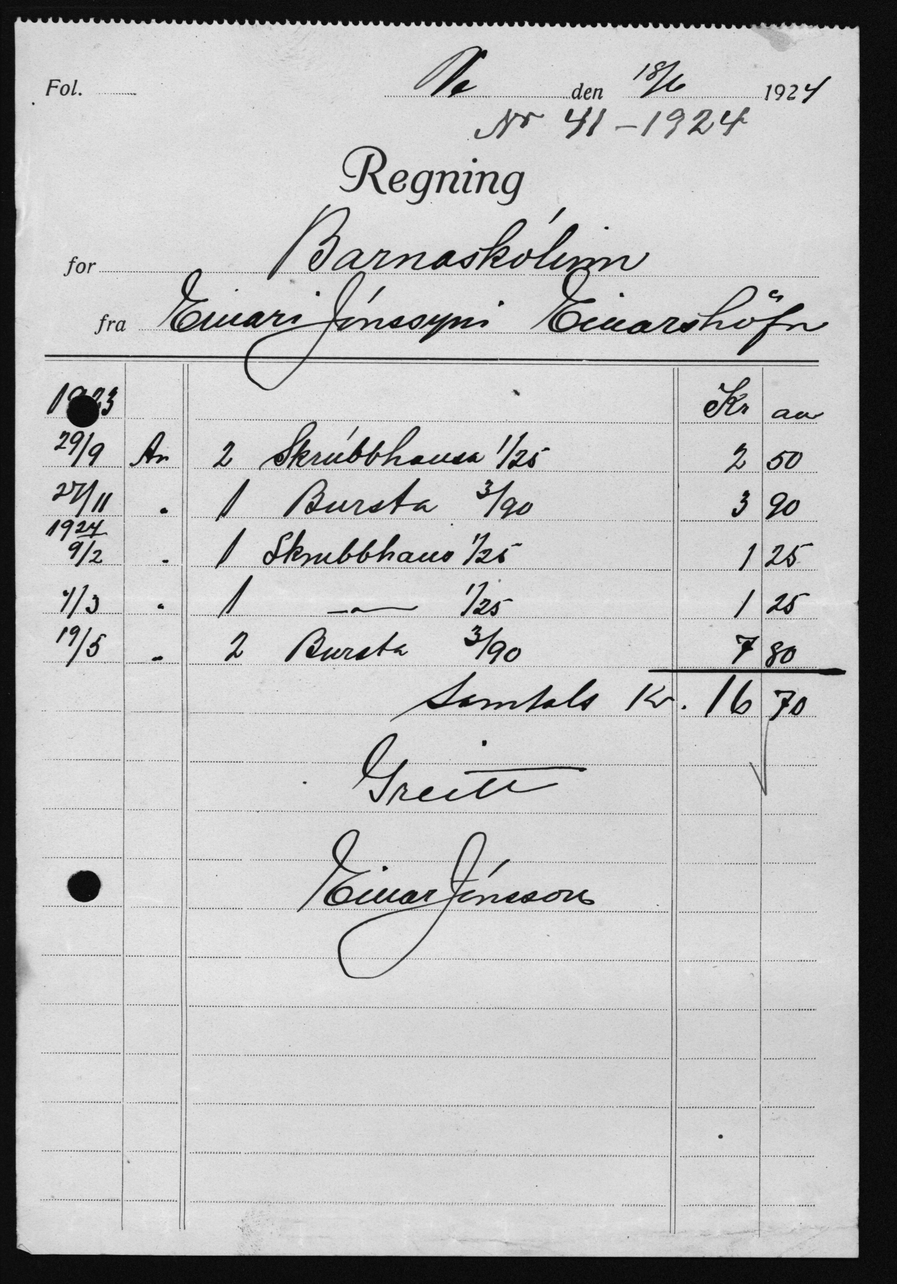 Fol. Ve den 18/6 1924
Nr 41 - 1924
Regning
for Barnaskólinn
fra Einari Jónssyni Einarshöfn
1923 Kr au
29/9 An 2 Skrúbbhausa 1/25 2 50
27/11 " 1 Bursta 3/90 3 90
1924
9/2 " 1 Skrubbhaus 1/25 1 25
1/3 " 1 —"— 1/25 1 25
19/5 " 2 Bursta 3/90 7 80
Samtals Kr. 16 70
Greitt
Einar Jónsson